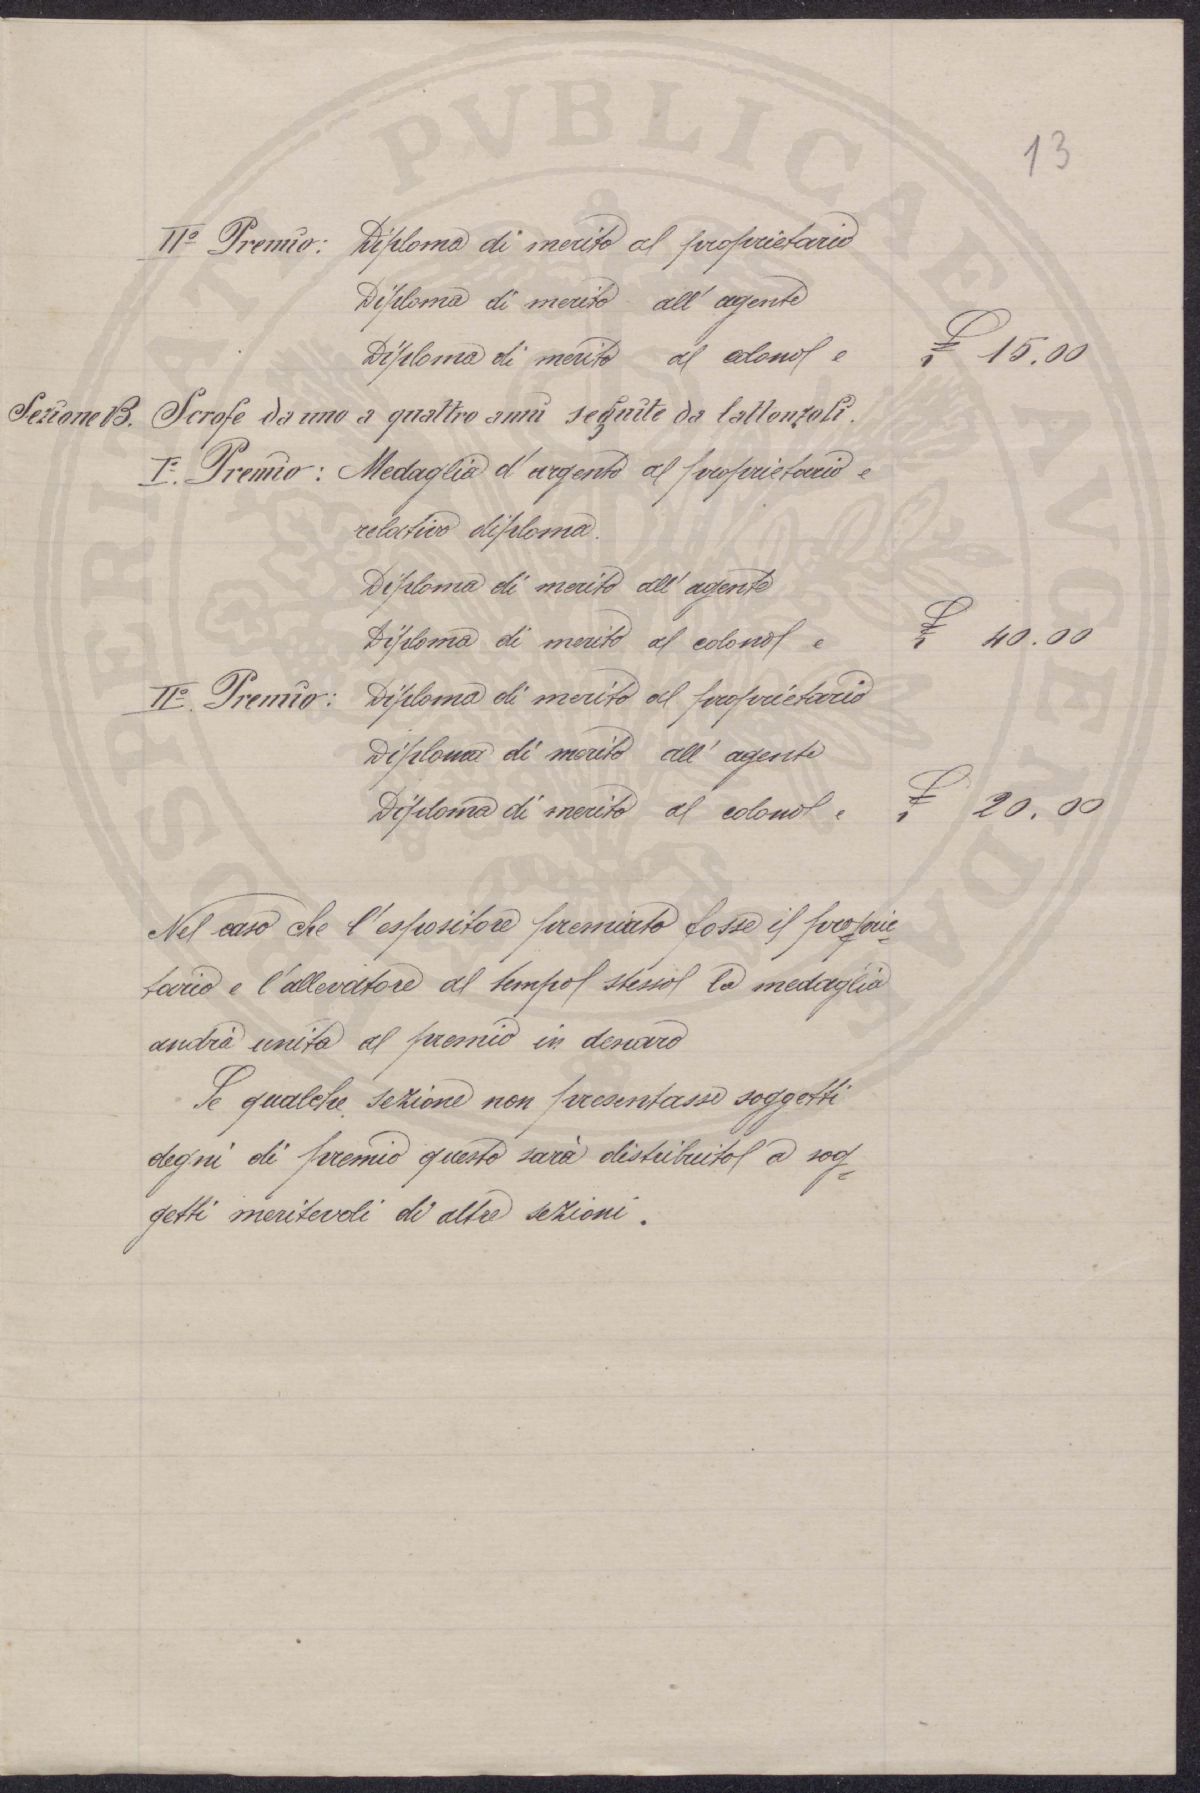 13
IIº Premio: Diploma di merito al proprietario
Diploma di merito all' agente
Diploma di merito al colono e £ 15.00
Sezione B. Scrofe da uno a quattro anni seguite da lattonzoli.
Iº. Premio: Medaglia d'argento al proprietario e
relativo diploma.
Diploma di merito all' agente
Diploma di merito al colono e £ 40.00
IIº. Premio: Diploma di merito al proprietario
Diploma di merito all' agente
Diploma di merito al colono e £ 20.00
Nel caso che l'espositore premiato fosse il proprie-
tario e l'allevatore al tempo stesso la medaglia
andrà unita al premio in denaro
Se qualche sezione non presentasse soggetti
degni di premio questo sarà distribuito a sog-
getti meritevoli di altre sezioni.